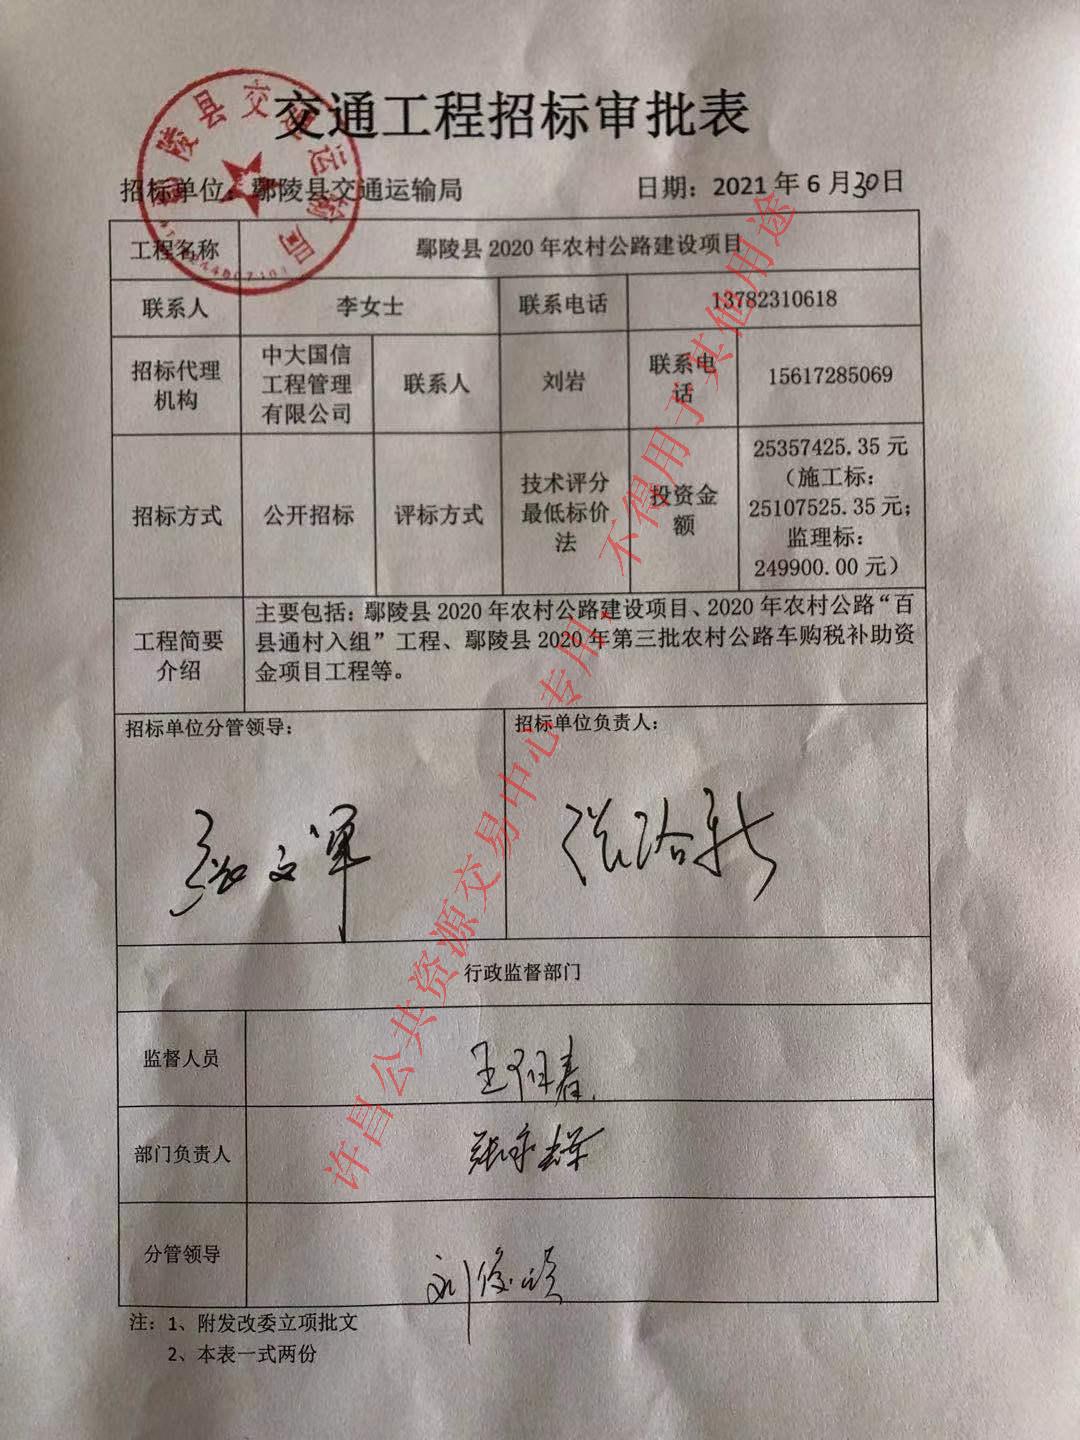 交通工程招标审批表
招标单位：鄢陵县交通运输局
日期：2021年6月30日
工程名称
鄢陵县2020年农村公路建设项目
联系人
李女士
联系电话
13782310618
招标代理
机构
中大国信
工程管理
有限公司
联系人
刘岩
联系电
话
15617285069
招标方式
公开招标
评标方式
技术评分
最低标价
法
投资金
额
25357425.35元
（施工标：
25107525.35元；
监理标：
249900.00元）
工程简要
介绍
主要包括：鄢陵县2020年农村公路建设项目、2020年农村公路“百
县通村入组”工程、鄢陵县2020年第三批农村公路车购税补助资
金项目工程等。
招标单位分管领导：
招标单位负责人：
行政监督部门
监督人员
部门负责人
分管领导
注：1、附发改委立项批文
2、本表一式两份
鄢陵县交通运输局
许昌公共资源交易中心专用，不得用于其他用途